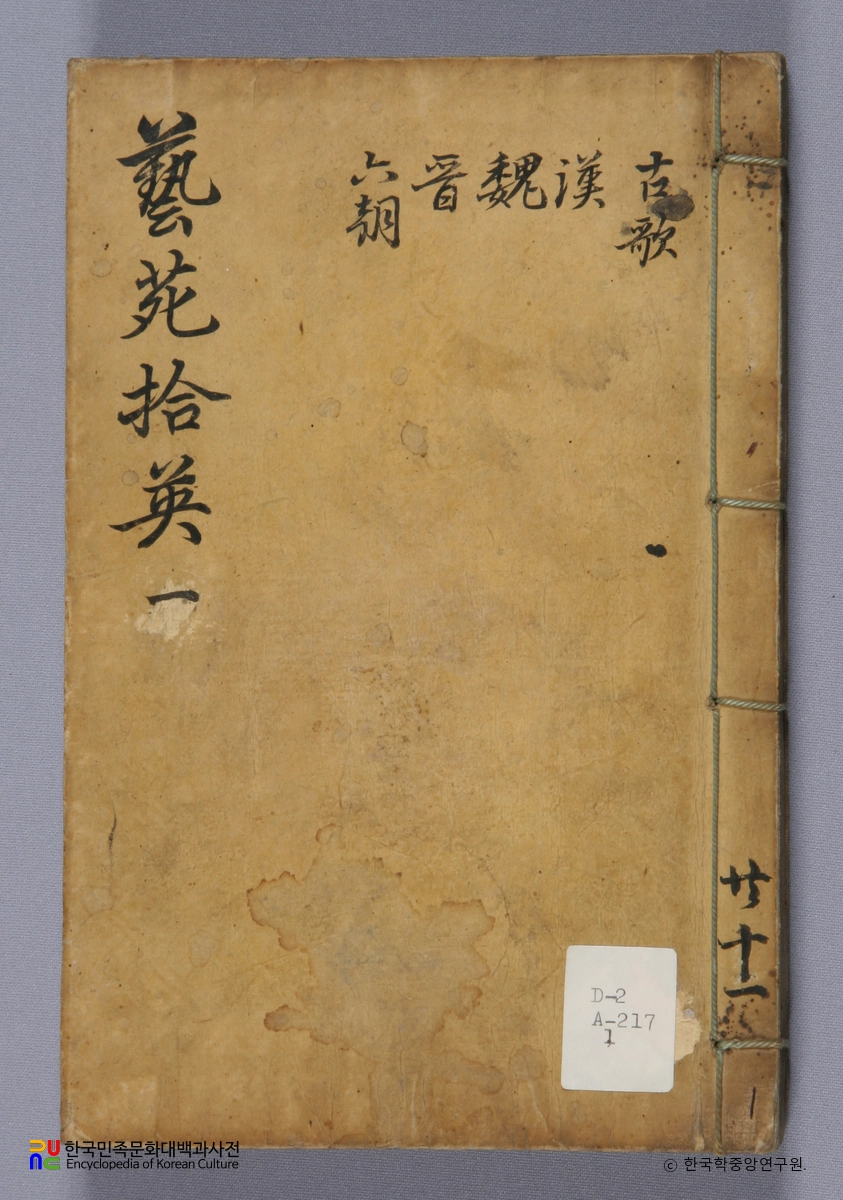 古歌
漢
魏
晋
六朝
藝苑拾英 一
共十一
D-2
A-217
1
한국민족문화대백과사전
Encyclopedia of Korean Culture
© 한국학중앙연구원.